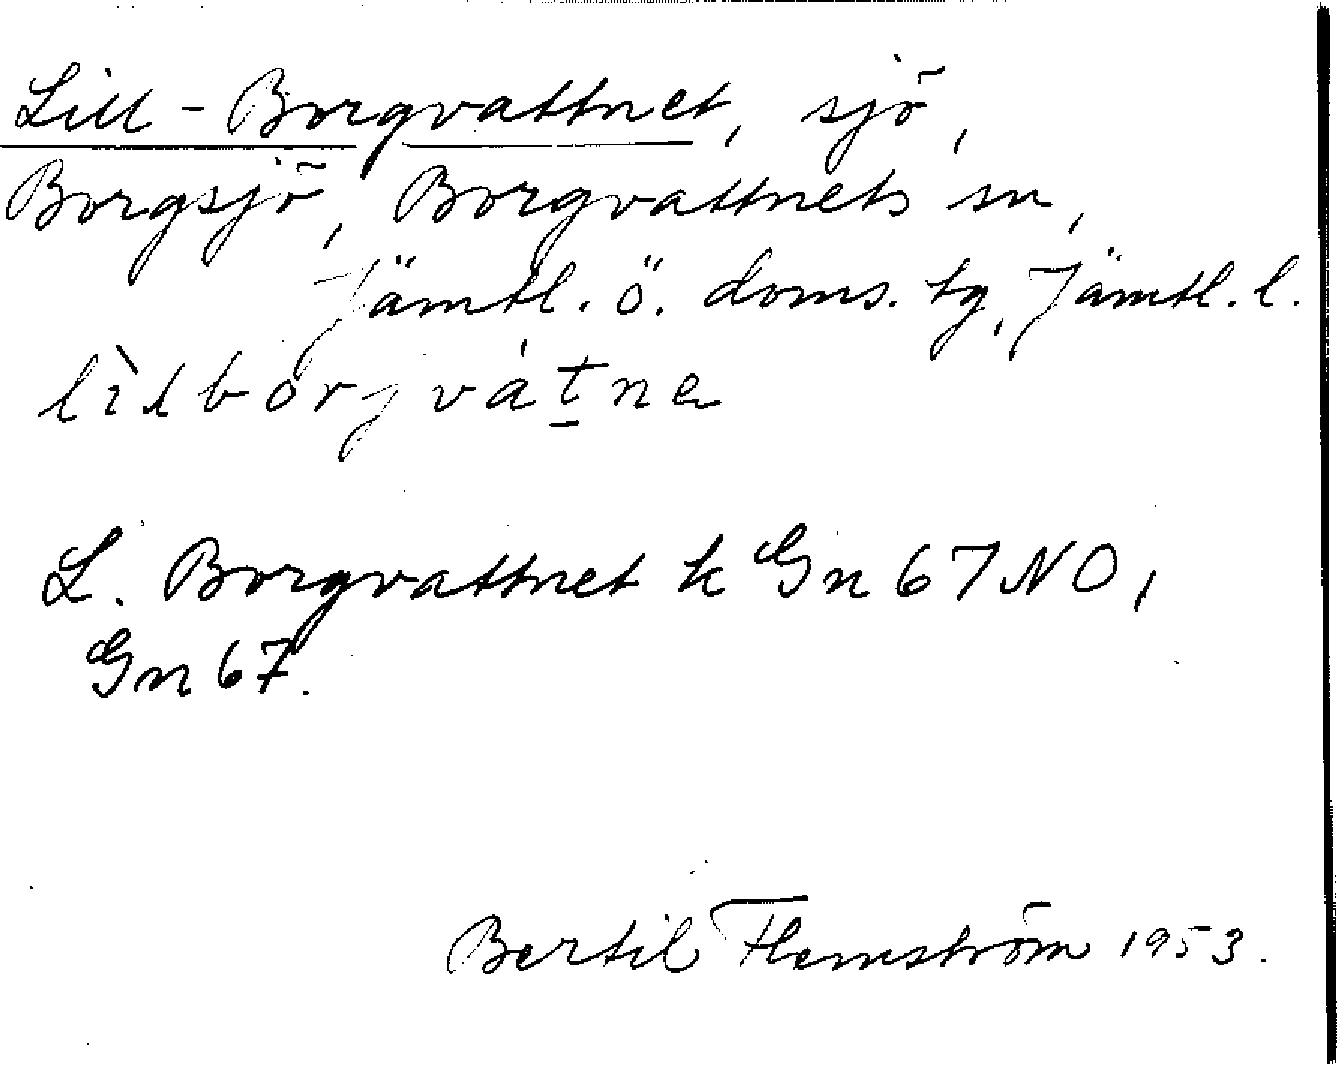 Lill-Borgvattnet, sjö,
Borgsjö, Borgvattnets sn,
Jämtl. ö. doms. tg, Jämtl. l.
lìlbòrjvátne
L. Borgvattnet k Gn 67 NO,
Gn 67.
Bertil Flemström 1953.